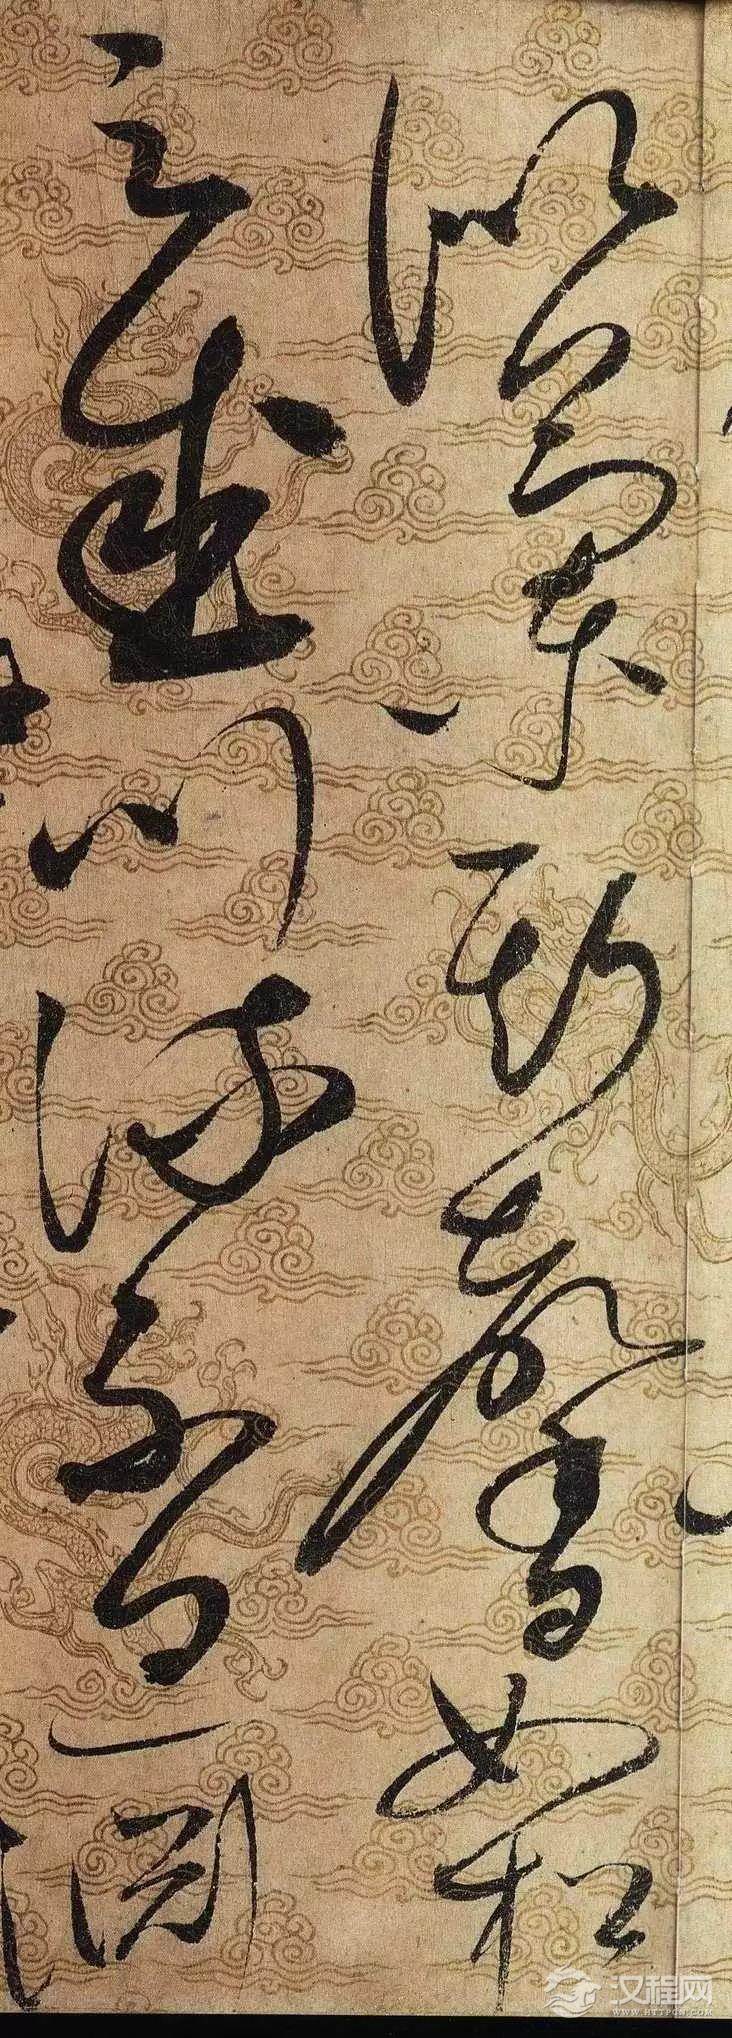 似兰斯馨如松
之盛川流不息渊
汉程网
WWW.HTTPCN.COM